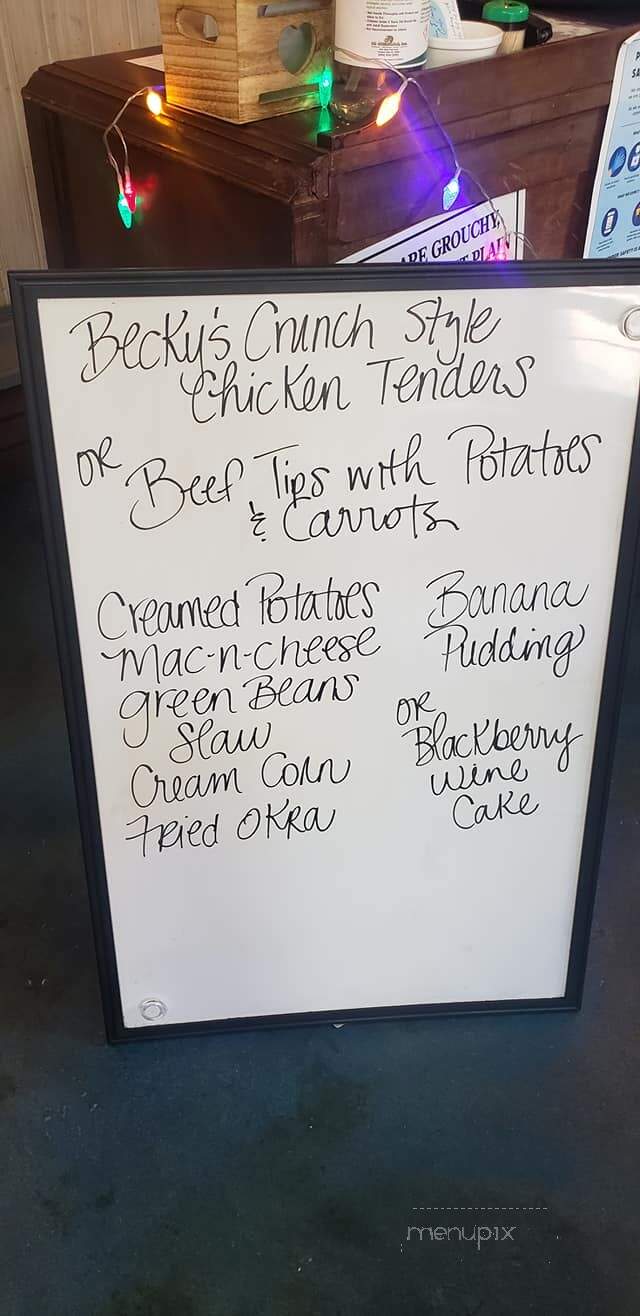 ARE GROUCHY,
PLAIN
Becky's Crunch Style
Chicken Tenders
OR Beef Tips with Potatoes
& Carrots
Creamed Potatoes
Mac-n-cheese
green Beans
Slaw
Cream Corn
Fried OKRA
Banana
Pudding
OR
Blackberry
Wine
Cake
menupix